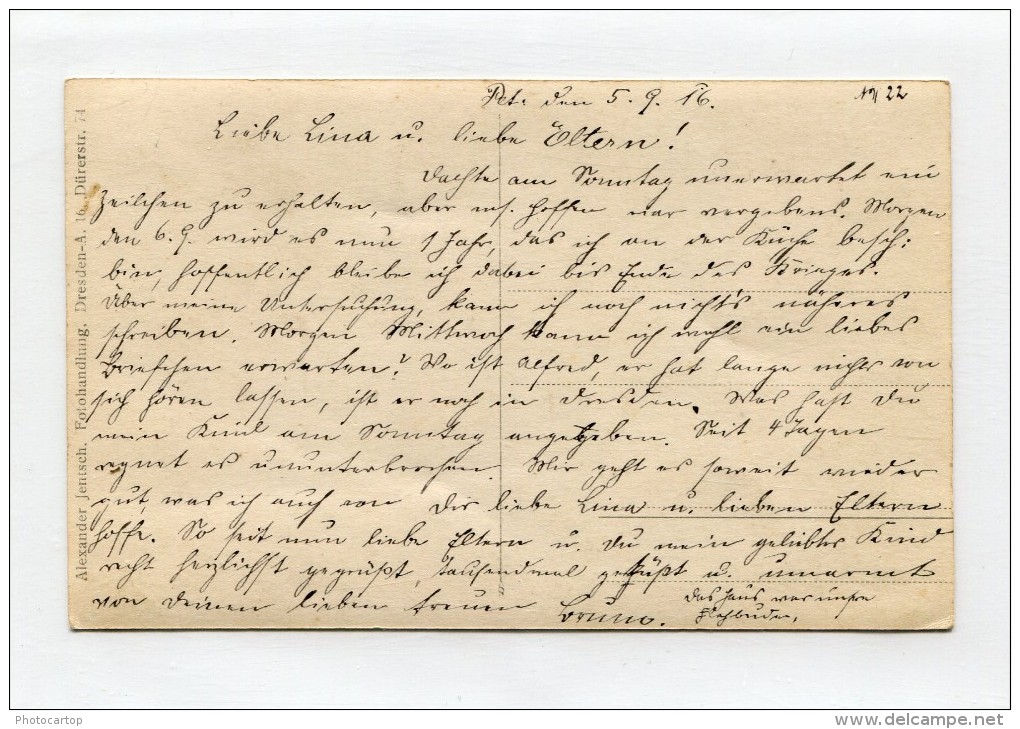 Pet. den 5. 9. 16.
No 22
Liebe Lina u. liebe Eltern!
Dachte am Sonntag unerwartet ein
Zeilchen zu erhalten, aber m. Hoffen war vergebens. Morgen
den 6. 9. wird es nun 1 Jahr, das ich an der Küche besch:
bin, hoffentlich bleibe ich dabei bis Ende des Krieges.
Über meine Untersuchung, kann ich noch nicht's näheres
schreiben. Morgen Mittwoch kann ich wohl ein liebes
Briefchen erwarten? Wo ist Alfred, er hat lange nichts von
sich hören lassen, ist er noch in Dresden. Was hast Du
mein Kind am Sonntag angegeben. Seit 4 Tagen
regnet es ununterbrochen. Mir geht es soweit wieder
gut, was ich auch von Dir liebe Lina u. lieben Eltern
hoffe. So seit nun liebe Eltern u. Du mein geliebtes Kind
recht herzlichst gegrüßt, tausendmal geküßt u. umarmt
von Deinen lieben treuen Bruno.
Das Haus war unsre
Alexander Jentsch. Fotohandlung. Dresden-A. 16. Dürerstr. 74
Photocartop
www.delcampe.net